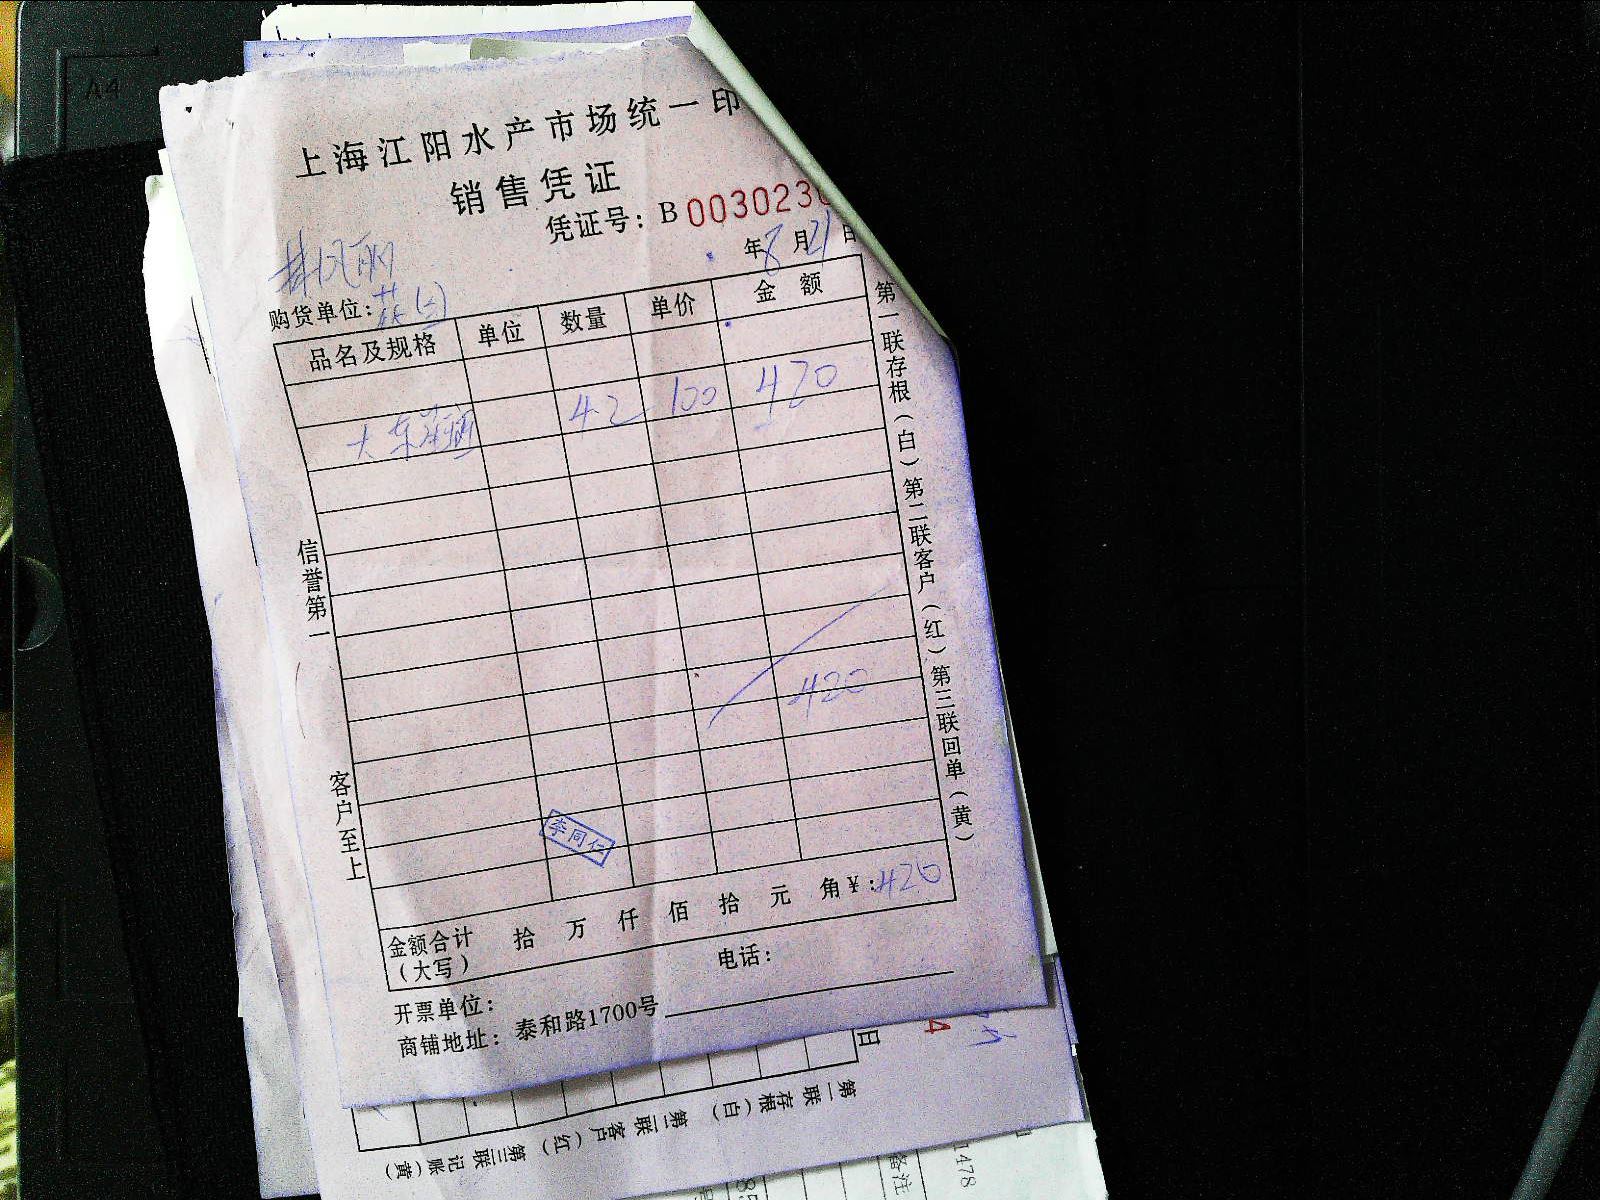 A4
上海江阳水产市场统一印
销售凭证
凭证号：B 0030230
年 8 月 21 日
购货单位：
品名及规格 单位 数量 单价 金 额
大 42 100 420
420
李同仁
金额合计（大写） 拾 万 仟 佰 拾 元 角 ¥：420
开票单位： 电话：
商铺地址：泰和路1700号
信誉第一
客户至上
第一联存根（白）第二联客户（红）第三联回单（黄）
4
日
第一联存根（白） 第二联客户（红） 第三联记账（黄）
备注
1478